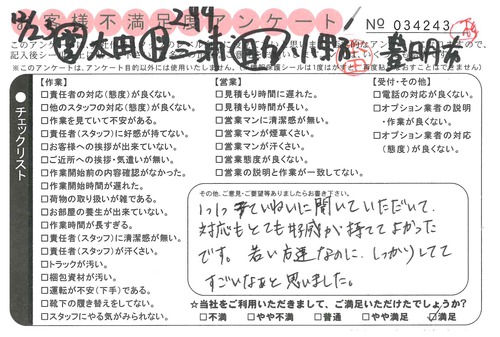 お客様不満足度アンケート
12/23 244
No 034243
太田 三浦 小野 豊明市
このアンケートは
記入後シー
※このアンケートは、アンケート目的以外には使用いたしません。
チェックリスト
【作業】
□責任者の対応(態度)が良くない。
□他のスタッフの対応(態度)が良くない。
□作業を見ていて不安がある。
□責任者(スタッフ)に好感が持てない。
□お客様への挨拶が出来ていない。
□ご近所への挨拶・気遣いが無い。
□作業開始前の内容確認がなかった。
□作業開始時間が遅れた。
□荷物の取り扱いが雑である。
□お部屋の養生が出来ていない。
□作業時間が長すぎる。
□責任者(スタッフ)に清潔感が無い。
□責任者(スタッフ)が汗くさい。
□トラックが汚い。
□梱包資材が汚い。
□運転が不安(下手)である。
□靴下の履き替えをしてない。
□スタッフにやる気がみられない。
【営業】
□見積もり時間に遅れた。
□見積もり時間が長い。
□営業マンに清潔感が無い。
□営業マンが煙草くさい。
□営業マンが汗くさい。
□営業態度が良くない。
□営業の説明と作業が一致してない。
【受付・その他】
□電話の対応が良くない。
□オプション業者の説明
・作業が良くない。
□オプション業者の対応
(態度)が良くない。
その他、ご意見・ご要望等ありましたらお書き下さい。
1つ1つていねいに聞いていただいて、
対応もとても好感が持ててよかった
です。若い方達なのに、しっかりしてて
すごいなぁと思いました。
☆当社をご利用いただきまして、ご満足いただけたでしょうか?
□不満 □やや不満 □普通 □やや満足 ☑満足